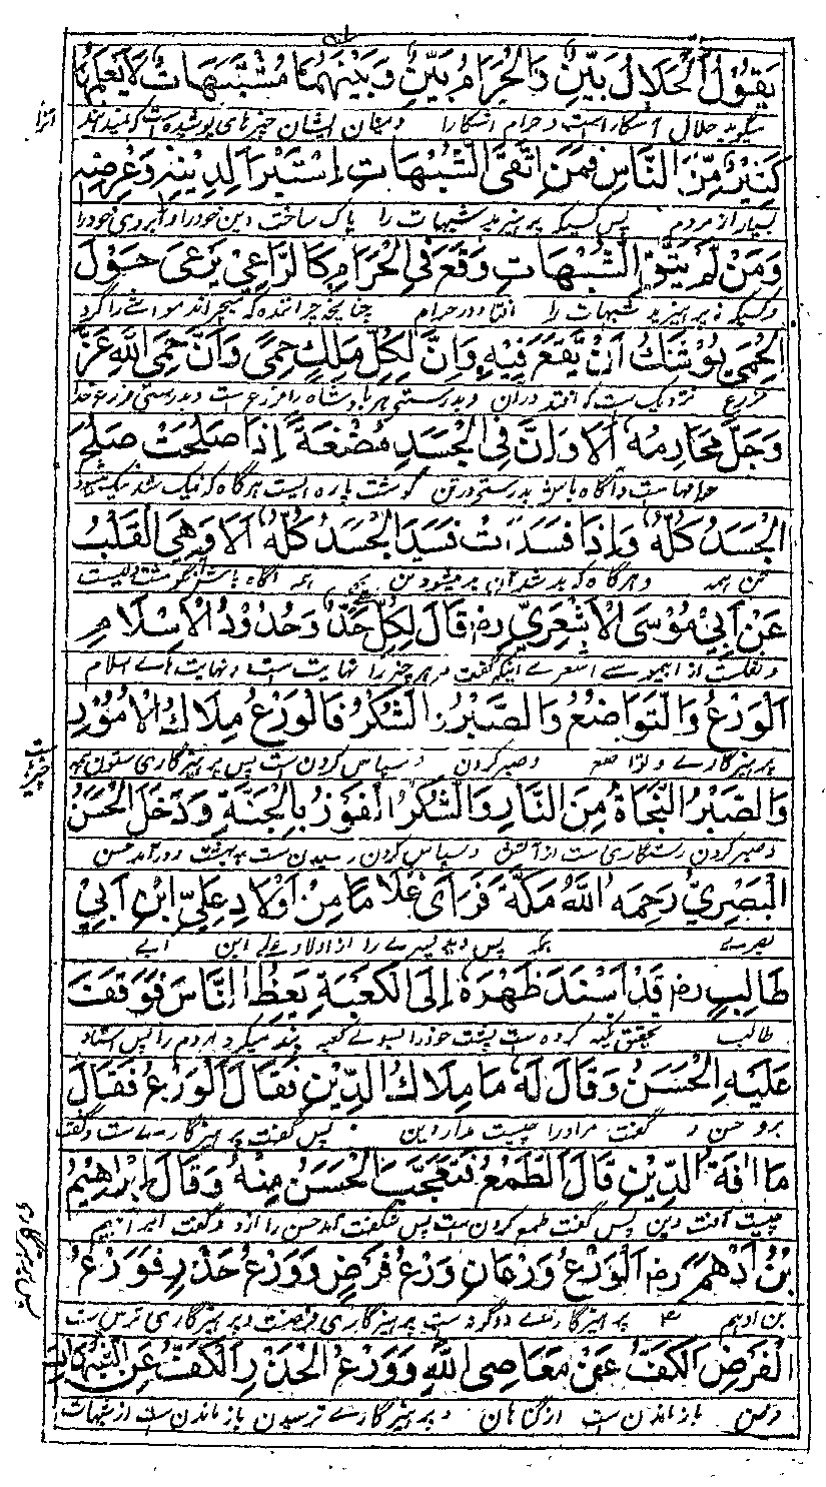 يَقُوْلُ اَلْحَلَالُ بَيِّنٌ وَالْحَرَامُ بَيِّنٌ وَبَيْنَهُمَا مُشْتَبِهَاتٌ لَا يَعْلَمُهَا
میگوید حلال آشکار است و حرام آشکارا و میان ایشان چیزهای پوشیده است که نمیدانند
كَثِيْرٌ مِّنَ النَّاسِ فَمَنِ اتَّقَى الشُّبُهَاتِ اِسْتَبْرَأَ لِدِيْنِهٖ وَعِرْضِهٖ
بسیار از مردم پس کسیکه پرهیزید شبهات را پاک ساخت دین خود را و آبروی خود را
وَمَنْ لَمْ يَتَّقِ الشُّبُهَاتِ وَقَعَ فِي الْحَرَامِ كَالرَّاعِيْ يَرْعٰى حَوْلَ
و کسیکه نه پرهیزید شبهات را افتاد در حرام چنانچه چراننده که میچراند مواشے را گرد
الْحِمٰى يُوْشِكُ اَنْ يَّقَعَ فِيْهِ وَاِنَّ لِكُلِّ مَلِكٍ حِمًى وَاَنَّ حِمَى اللهِ عَزَّ
مزرع نزدیک ست که افتد دران و بدرستی هر بادشاه را مزرع است و بدرستی مزرع خدا
وَجَلَّ مَحَارِمُهٗ اَلَا وَاِنَّ فِي الْجَسَدِ مُضْغَةً اِذَا صَلَحَتْ صَلَحَ
حرامها ست و آگاه باش بدرستی در تن گوشت پاره ایست هرگاه که نیک شد نیک میشود
الْجَسَدُ كُلُّهٗ وَاِذَا فَسَدَتْ فَسَدَ الْجَسَدُ كُلُّهٗ اَلَا وَهِيَ الْقَلْبُ
تن همه و هرگاه که بد شد آن بد میشود تن همه آگاه باش آن گوشت دلیست
عَنْ اَبِيْ مُوْسَى الْاَشْعَرِيِّ رض قَالَ لِكُلٍّ حَدٌّ وَحُدُوْدُ الْاِسْلَامِ
و نقلست از ابیموسے اشعرے اینکه گفت هر چیز را نهایت است و نهایت هاے اسلام
اَلْوَرَعُ وَالتَّوَاضُعُ وَالصَّبْرُ وَالشُّكْرُ فَالْوَرَعُ مِلَاكُ الْاُمُوْرِ
پرهیزگارے و تواضع و صبر کردن و سپاس کردن است پس پرهیزگاری ستون همه
وَالصَّبْرُ النَّجَاةُ مِنَ النَّارِ وَالشُّكْرُ الْفَوْزُ بِالْجَنَّةِ وَدَخَلَ الْحَسَنُ
و صبر کردن رستگاری است از آتش و سپاس کردن رسیدن ست به بهشت و در آمد حسن
الْبَصْرِيُّ رَحِمَهُ اللّٰهُ مَكَّةَ فَرَاٰى غُلَامًا مِنْ اَوْلَادِ عَلِيِّ ابْنِ اَبِيْ
بصرے بمکه پس دید پسرے را از اولاد علے ابن ابے
طَالِبٍ رض قَدْ اَسْنَدَ ظَهْرَهٗ اِلَى الْكَعْبَةِ يَعِظُ النَّاسَ فَوَقَفَ
طالب بتحقیق تکیه کرده ست پشت خود را بسوے کعبه پند میکرد مردم را پس استاد
عَلَيْهِ الْحَسَنُ وَقَالَ لَهٗ مَا مِلَاكُ الدِّيْنِ فَقَالَ الْوَرَعُ فَقَالَ
برو حسن و گفت مر او را چیست مدار دین پس گفت پرهیزگارے ست و گفت
مَا اٰفَةُ الدِّيْنِ قَالَ الطَّمَعُ فَتَعَجَّبَ الْحَسَنُ مِنْهُ وَقَالَ اِبْرَاهِيْمُ
چیست آفت دین پس گفت طمع کردن ست پس شگفت آمد حسن را ازو و گفت ابراهیم
بْنُ اَدْهَمَ رض اَلْوَرَعُ وَرَعَانِ وَرَعُ فَرْضٍ وَوَرَعُ حَذَرٍ فَوَرَعُ
بن ادهم پرهیزگارے دو گونه ست پرهیزگاری فرضست و پرهیزگاری ترس ست
الْفَرْضِ الْكَفُّ عَنْ مَعَاصِي اللّٰهِ وَوَرَعُ الْحَذَرِ الْكَفُّ عَنِ الشُّبُهَاتِ
باز ماندن ست از گناهان و پرهیزگارے ترسیدن باز ماندن ست از شبهات